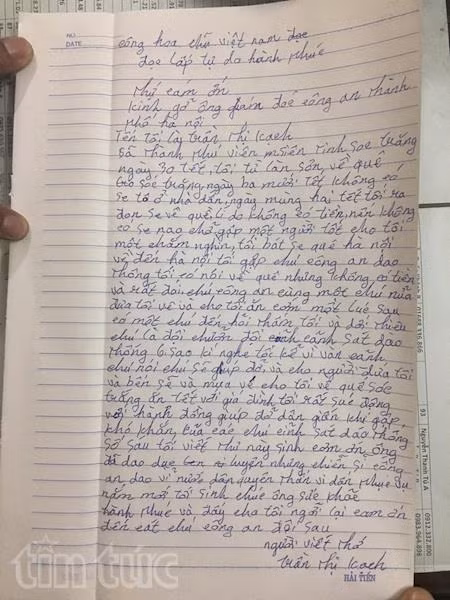 NO
DATE
công hoa chủ việt nam đọc
đọc lấp tự do hành Nhúc
Thý cam ơn
kinh gở ông giám đóc công an thành
phố hà nội
Tên Tôi là Trần Thị Koeh
sã thành Nhú viên
sóc Trăng
ngày 30 Tết, tôi từ lăn sơn về quê
Sóc Trăng, ngày ba mươi Tết không có
se tô ở nhà dân, ngày mung hai tết tôi ra
đon se về quê li do không có tiền, nên không
có se nào chở gặp một người tốt cho tôi
một chăm nghìn, tôi bắt se quê hà nội
về đến hà nội tôi gặp chú công an dao
thông tôi có nói về quê nhưng không có tiền
và rất đoi chú công an cùng một chú nữa
đưa tôi về và cho tôi ăn cơm một lúc sau
có một chú đến hỏi thăm tôi và dới thiêu
chú là đội chưởn đôi cảnh sát dao
thông 6. sao ki nghe tôi kể vì van cảnh
chú nói chú sẽ giúp đở và cho người đưa tôi
và bến sẽ và mua vé cho tôi về quê sóc
trăng ăn tết với gia đinh tôi rất súc động
với hành động giúp đở dân giản khi gặp
khó khăn, của các chú cảnh sát dao thông
số sau tôi viết thú này sinh cơm ơn, ông
đã dao dục luyện những chiến sĩ công
an, dao vì nước dân quyên thân vì dân phuc vu
năm mới tôi sinh chúc ông sức khỏe
hành Nhuc và đấy cho tôi ngỏi lại cam ơn
đến cat chú công an đội sau
người viết thơ
Trần Thị Koeh
HẢI TIẾN
tin tức
93
Nguyễn Thanh Tú A
0912.332.800
0983.964.898